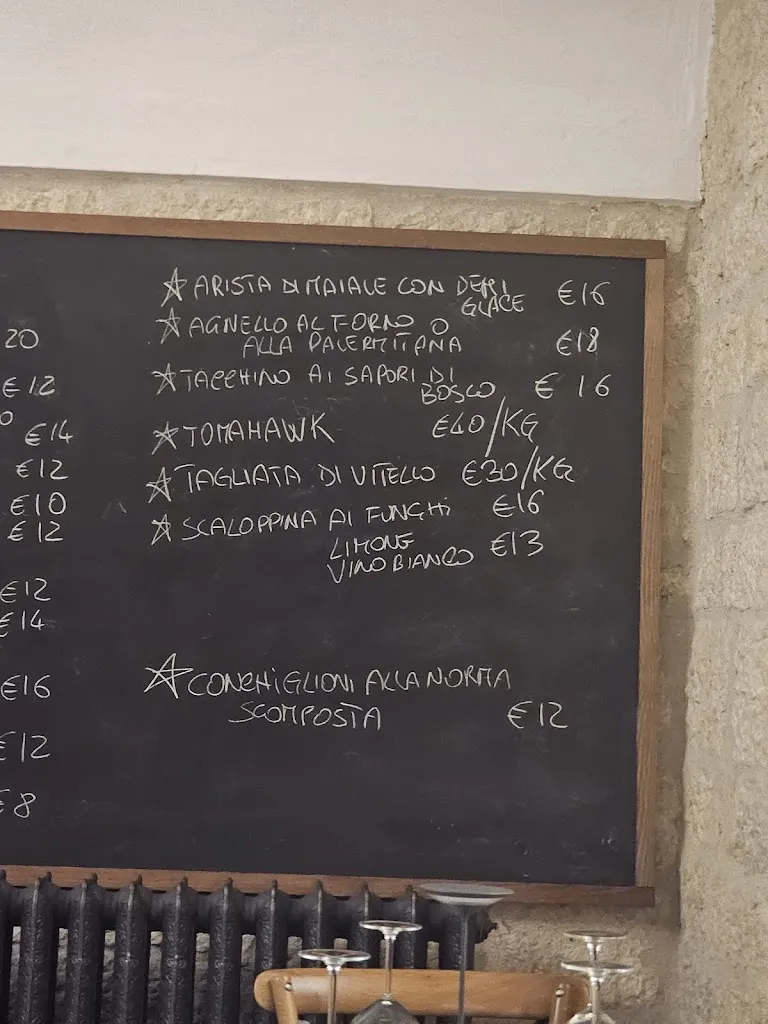 ☆ ARISTA DI MAIALE CON DEMI €16
GLACE
☆ AGNELLO AL FORNO O
ALLA PALERMITANA €18
☆ TACCHINO AI SAPORI DI
BOSCO € 16
☆ TOMAHAWK €40/KG
☆ TAGLIATA DI VITELLO €30/KG
☆ SCALOPPINA AI FUNGHI €16
LIMONE
VINO BIANCO €13
☆ CONCHIGLIONI ALLA NORMA
SCOMPOSTA €12
20
€12
€14
€12
€10
€12
€12
€14
€16
€12
€8